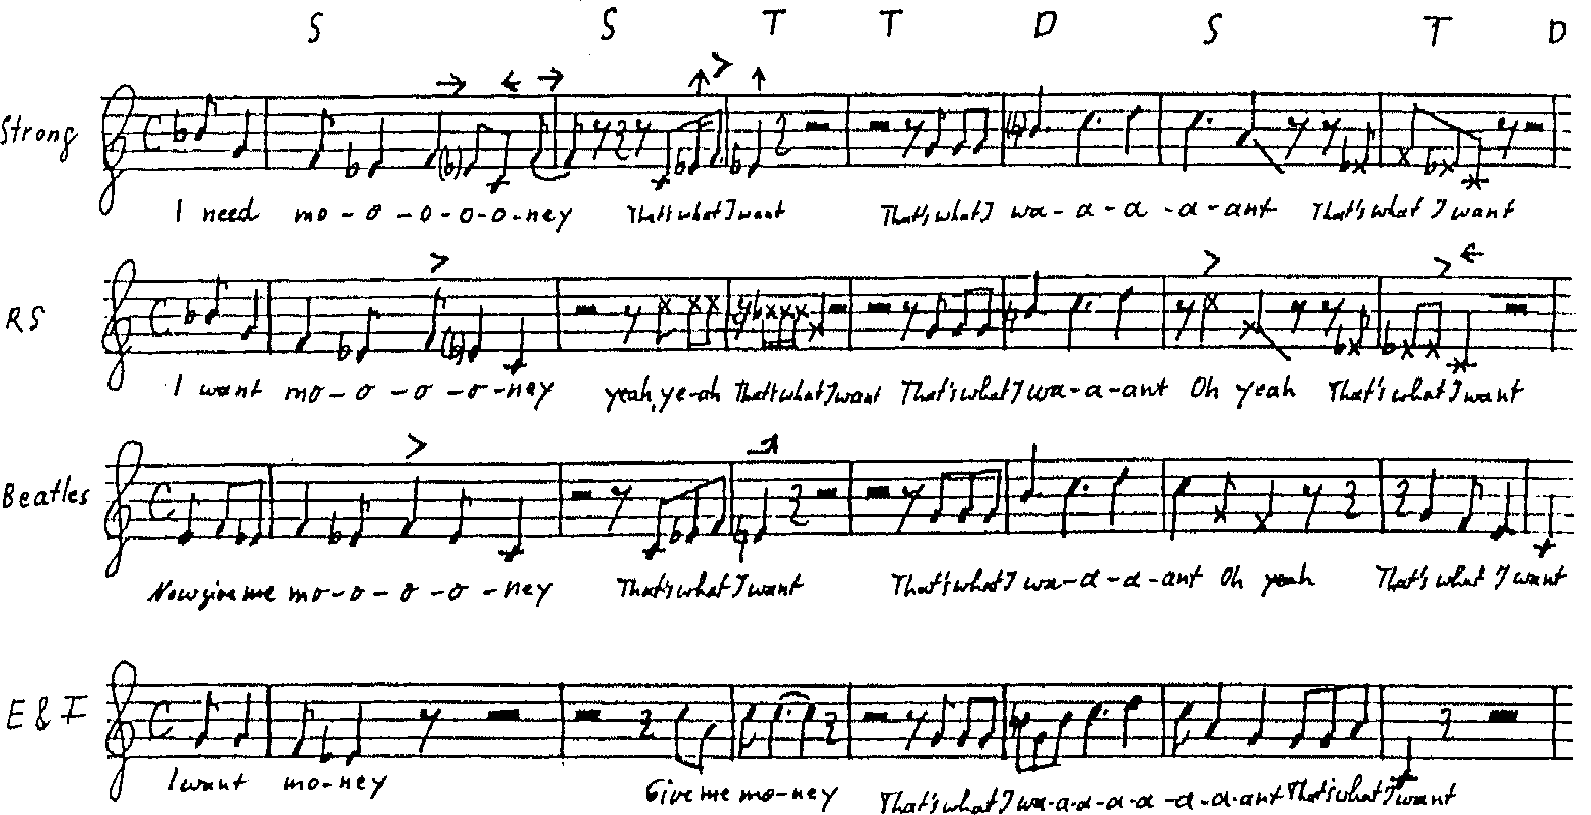 S S T T D S T D
Strong
I need mo-o-o-o-o-ney That's what I want That's what I wa-a-a-a-ant That's what I want
RS
I want mo-o-o-o-ney yeah, ye-ah That's what I want That's what I wa-a-ant Oh yeah That's what I want
Beatles
Now give me mo-o-o-o-ney That's what I want That's what I wa-a-a-ant Oh yeah That's what I want
E & I
I want mo-ney Give me mo-ney That's what I wa-a-a-a-a-a-a-ant That's what I want